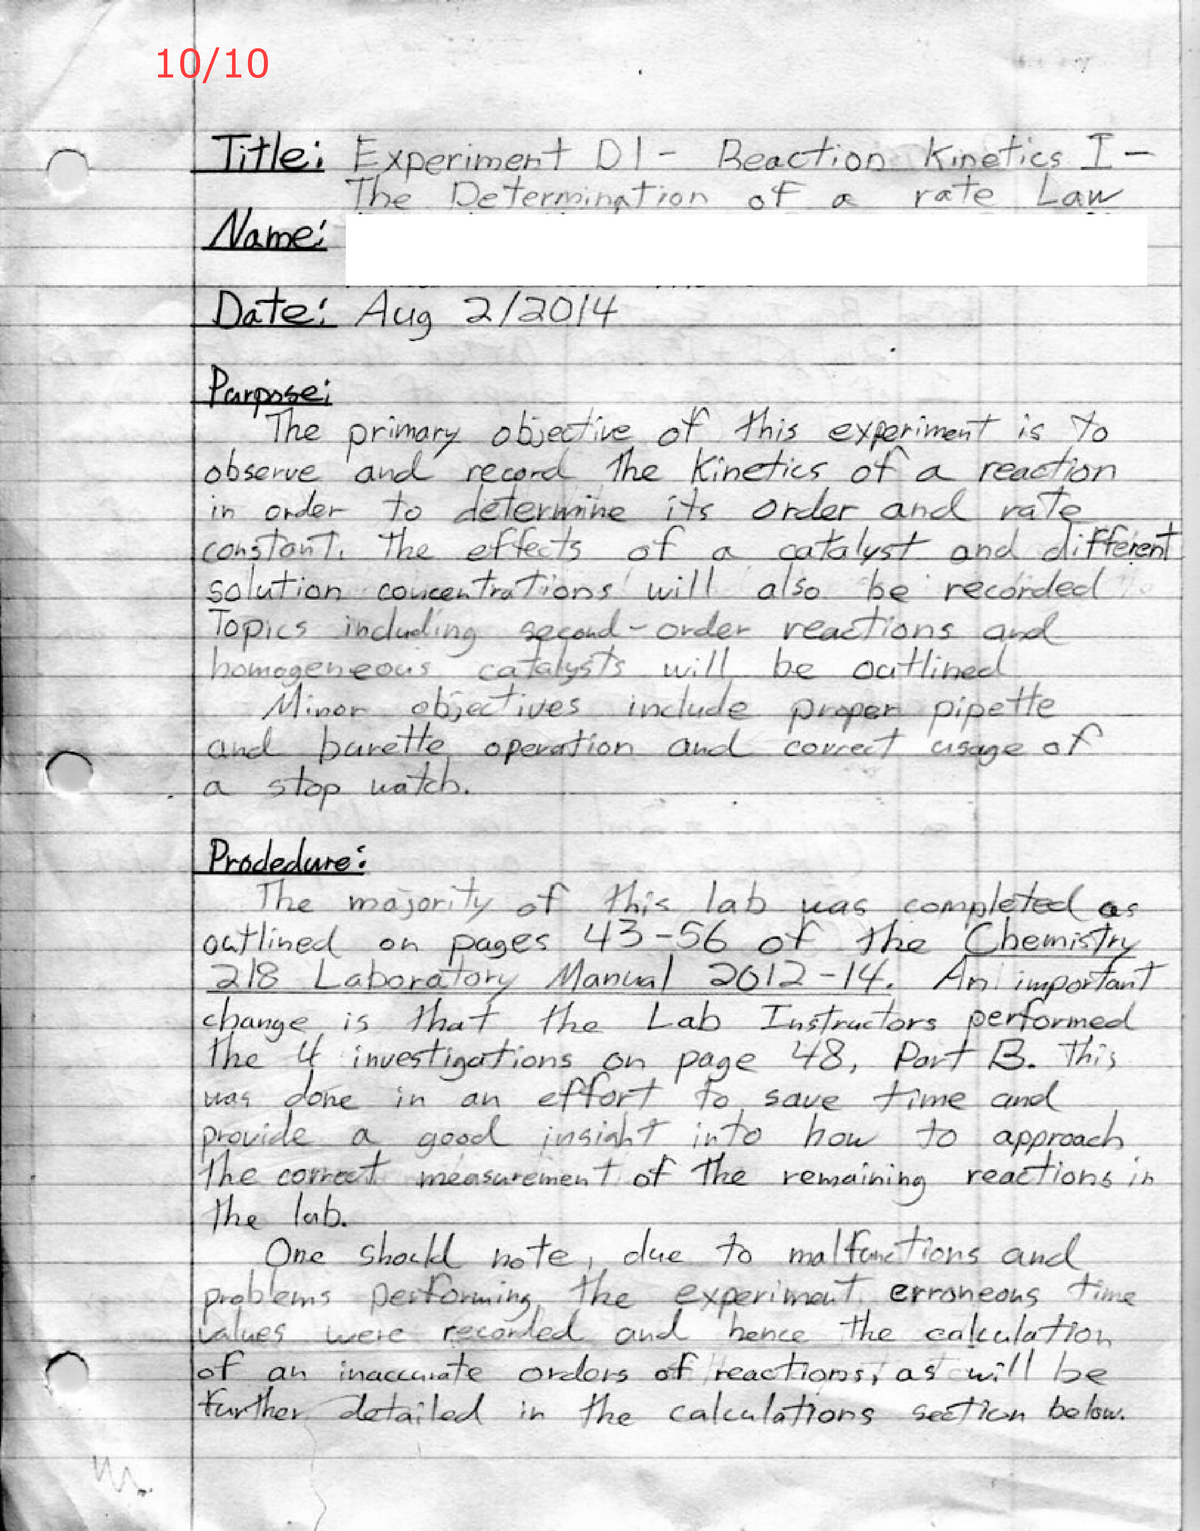 10/10
Title: Experiment D1 - Reaction Kinetics I -
The Determination of a rate Law
Name:
Date: Aug 2/2014
Purpose:
The primary objective of this experiment is to
observe and record the kinetics of a reaction
in order to determine its order and rate
constant. The effects of a catalyst and different
solution concentrations will also be recorded
Topics including second-order reactions and
homogeneous catalysts will be outlined
Minor objectives include proper pipette
and burette operation and correct usage of
a stop watch.
Prodedure:
The majority of this lab was completed as
outlined on pages 43-56 of the Chemistry
218 Laboratory Manual 2012-14. An important
change is that the Lab Instructors performed
the 4 investigations on page 48, Part B. This
was done in an effort to save time and
provide a good insight into how to approach
the correct measurement of the remaining reactions in
the lab.
One should note, due to malfunctions and
problems performing the experiment erroneous time
values were recorded and hence the calculation
of an inaccurate orders of reactions, as will be
further detailed in the calculations section below.